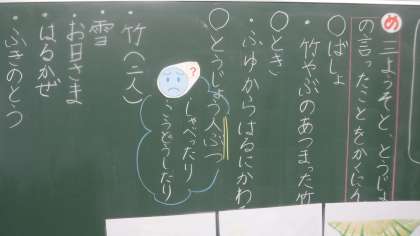 め 三よっそと、とうじょ
の言ったことをかくにん
○ばしょ
・竹やぶのあつまった竹
○とき
・ふゆからはるにかわ
○とうじょう人ぶつ
?
しゃべったり
こうどうしたり
・竹(二人)
・雪
・お日さま
・はるかぜ
・ふきのとう